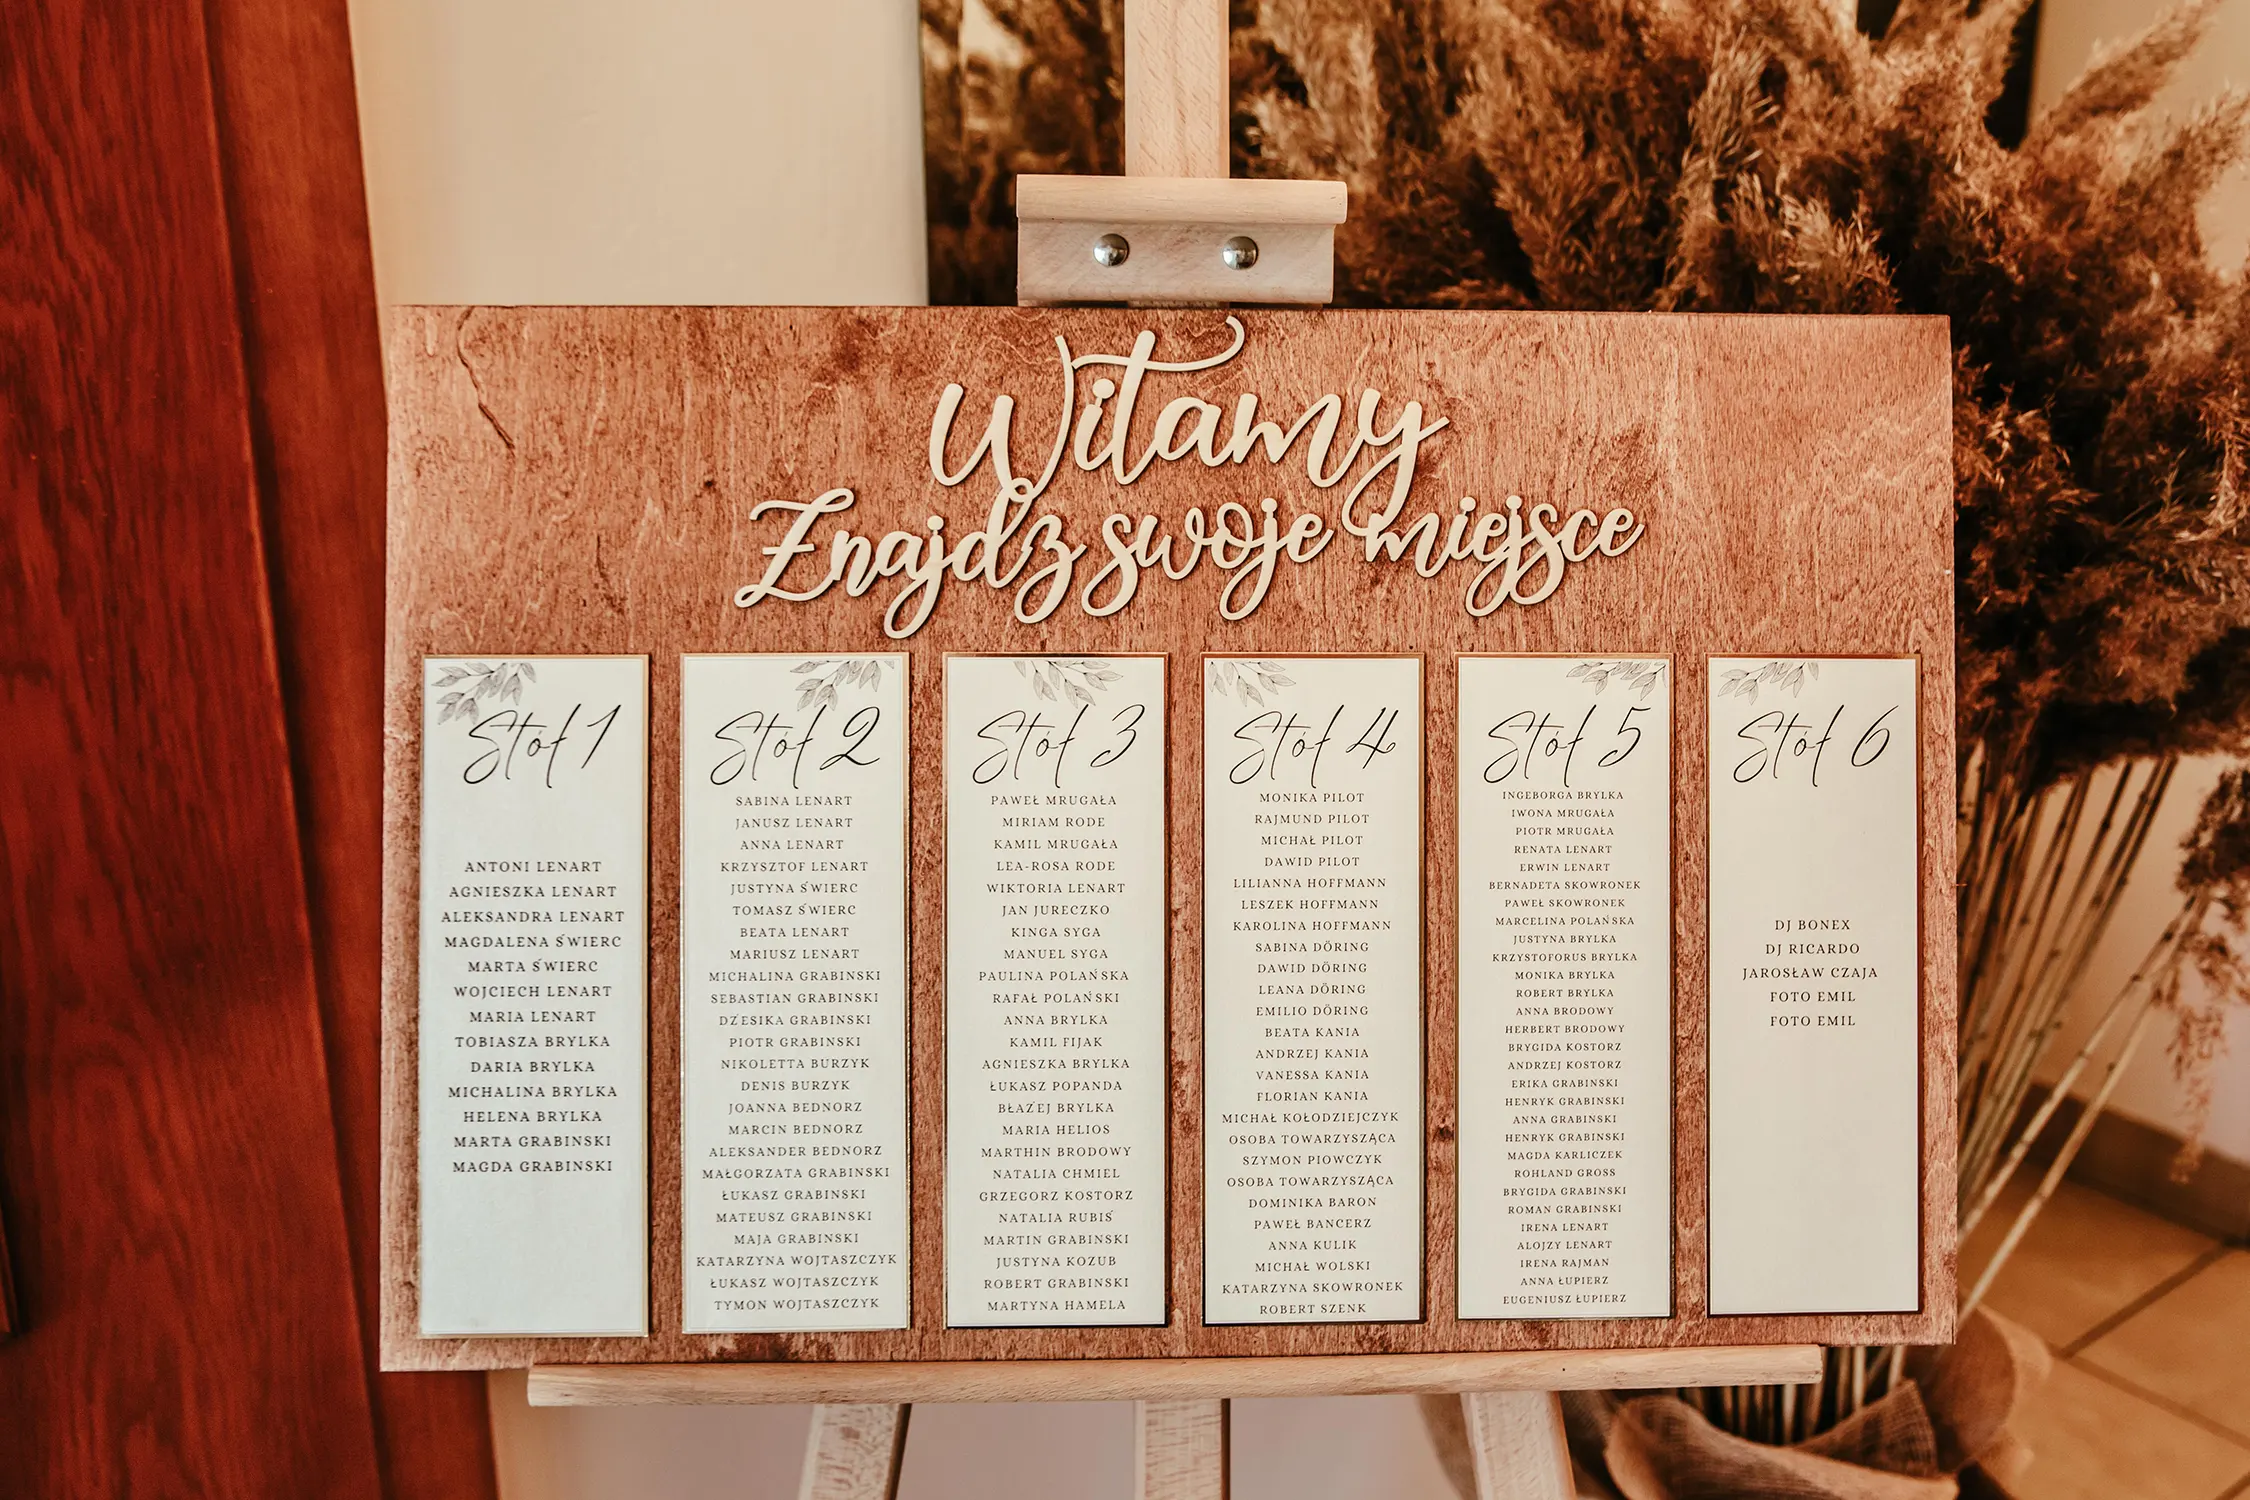 Witamy
Znajdz swoje miejsce
Stół 1
ANTONI LENART
AGNIESZKA LENART
ALEKSANDRA LENART
MAGDALENA ŚWIERC
MARTA ŚWIERC
WOJCIECH LENART
MARIA LENART
TOBIASZA BRYLKA
DARIA BRYLKA
MICHALINA BRYLKA
HELENA BRYLKA
MARTA GRABINSKI
MAGDA GRABINSKI
Stół 2
SABINA LENART
JANUSZ LENART
ANNA LENART
KRZYSZTOF LENART
JUSTYNA ŚWIERC
TOMASZ ŚWIERC
BEATA LENART
MARIUSZ LENART
MICHALINA GRABINSKI
SEBASTIAN GRABINSKI
DŻESIKA GRABINSKI
PIOTR GRABINSKI
NIKOLETTA BURZYK
DENIS BURZYK
JOANNA BEDNORZ
MARCIN BEDNORZ
ALEKSANDER BEDNORZ
MAŁGORZATA GRABINSKI
ŁUKASZ GRABINSKI
MATEUSZ GRABINSKI
MAJA GRABINSKI
KATARZYNA WOJTASZCZYK
ŁUKASZ WOJTASZCZYK
TYMON WOJTASZCZYK
Stół 3
PAWEŁ MRUGAŁA
MIRIAM RODE
KAMIL MRUGAŁA
LEA-ROSA RODE
WIKTORIA LENART
JAN JURECZKO
KINGA SYGA
MANUEL SYGA
PAULINA POLAŃSKA
RAFAŁ POLAŃSKI
ANNA BRYLKA
KAMIL FIJAK
AGNIESZKA BRYLKA
ŁUKASZ POPANDA
BŁAŻEJ BRYLKA
MARIA HELIOS
MARTHIN BRODOWY
NATALIA CHMIEL
GRZEGORZ KOSTORZ
NATALIA RUBIŚ
MARTIN GRABINSKI
JUSTYNA KOZUB
ROBERT GRABINSKI
MARTYNA HAMELA
Stół 4
MONIKA PILOT
RAJMUND PILOT
MICHAŁ PILOT
DAWID PILOT
LILIANNA HOFFMANN
LESZEK HOFFMANN
KAROLINA HOFFMANN
SABINA DÖRING
DAWID DÖRING
LEANA DÖRING
EMILIO DÖRING
BEATA KANIA
ANDRZEJ KANIA
VANESSA KANIA
FLORIAN KANIA
MICHAŁ KOŁODZIEJCZYK
OSOBA TOWARZYSZĄCA
SZYMON PIOWCZYK
OSOBA TOWARZYSZĄCA
DOMINIKA BARON
PAWEŁ BANCERZ
ANNA KULIK
MICHAŁ WOLSKI
KATARZYNA SKOWRONEK
ROBERT SZENK
Stół 5
INGEBORGA BRYLKA
IWONA MRUGAŁA
PIOTR MRUGAŁA
RENATA LENART
ERWIN LENART
BERNADETA SKOWRONEK
PAWEŁ SKOWRONEK
MARCELINA POLAŃSKA
JUSTYNA BRYLKA
KRZYSTOFORUS BRYLKA
MONIKA BRYLKA
ROBERT BRYLKA
ANNA BRODOWY
HERBERT BRODOWY
BRYGIDA KOSTORZ
ANDRZEJ KOSTORZ
ERIKA GRABINSKI
HENRYK GRABINSKI
ANNA GRABINSKI
HENRYK GRABINSKI
MAGDA KARLICZEK
ROHLAND GROSS
BRYGIDA GRABINSKI
ROMAN GRABINSKI
IRENA LENART
ALOJZY LENART
IRENA RAJMAN
ANNA ŁUPIERZ
EUGENIUSZ ŁUPIERZ
Stół 6
DJ BONEX
DJ RICARDO
JAROSŁAW CZAJA
FOTO EMIL
FOTO EMIL